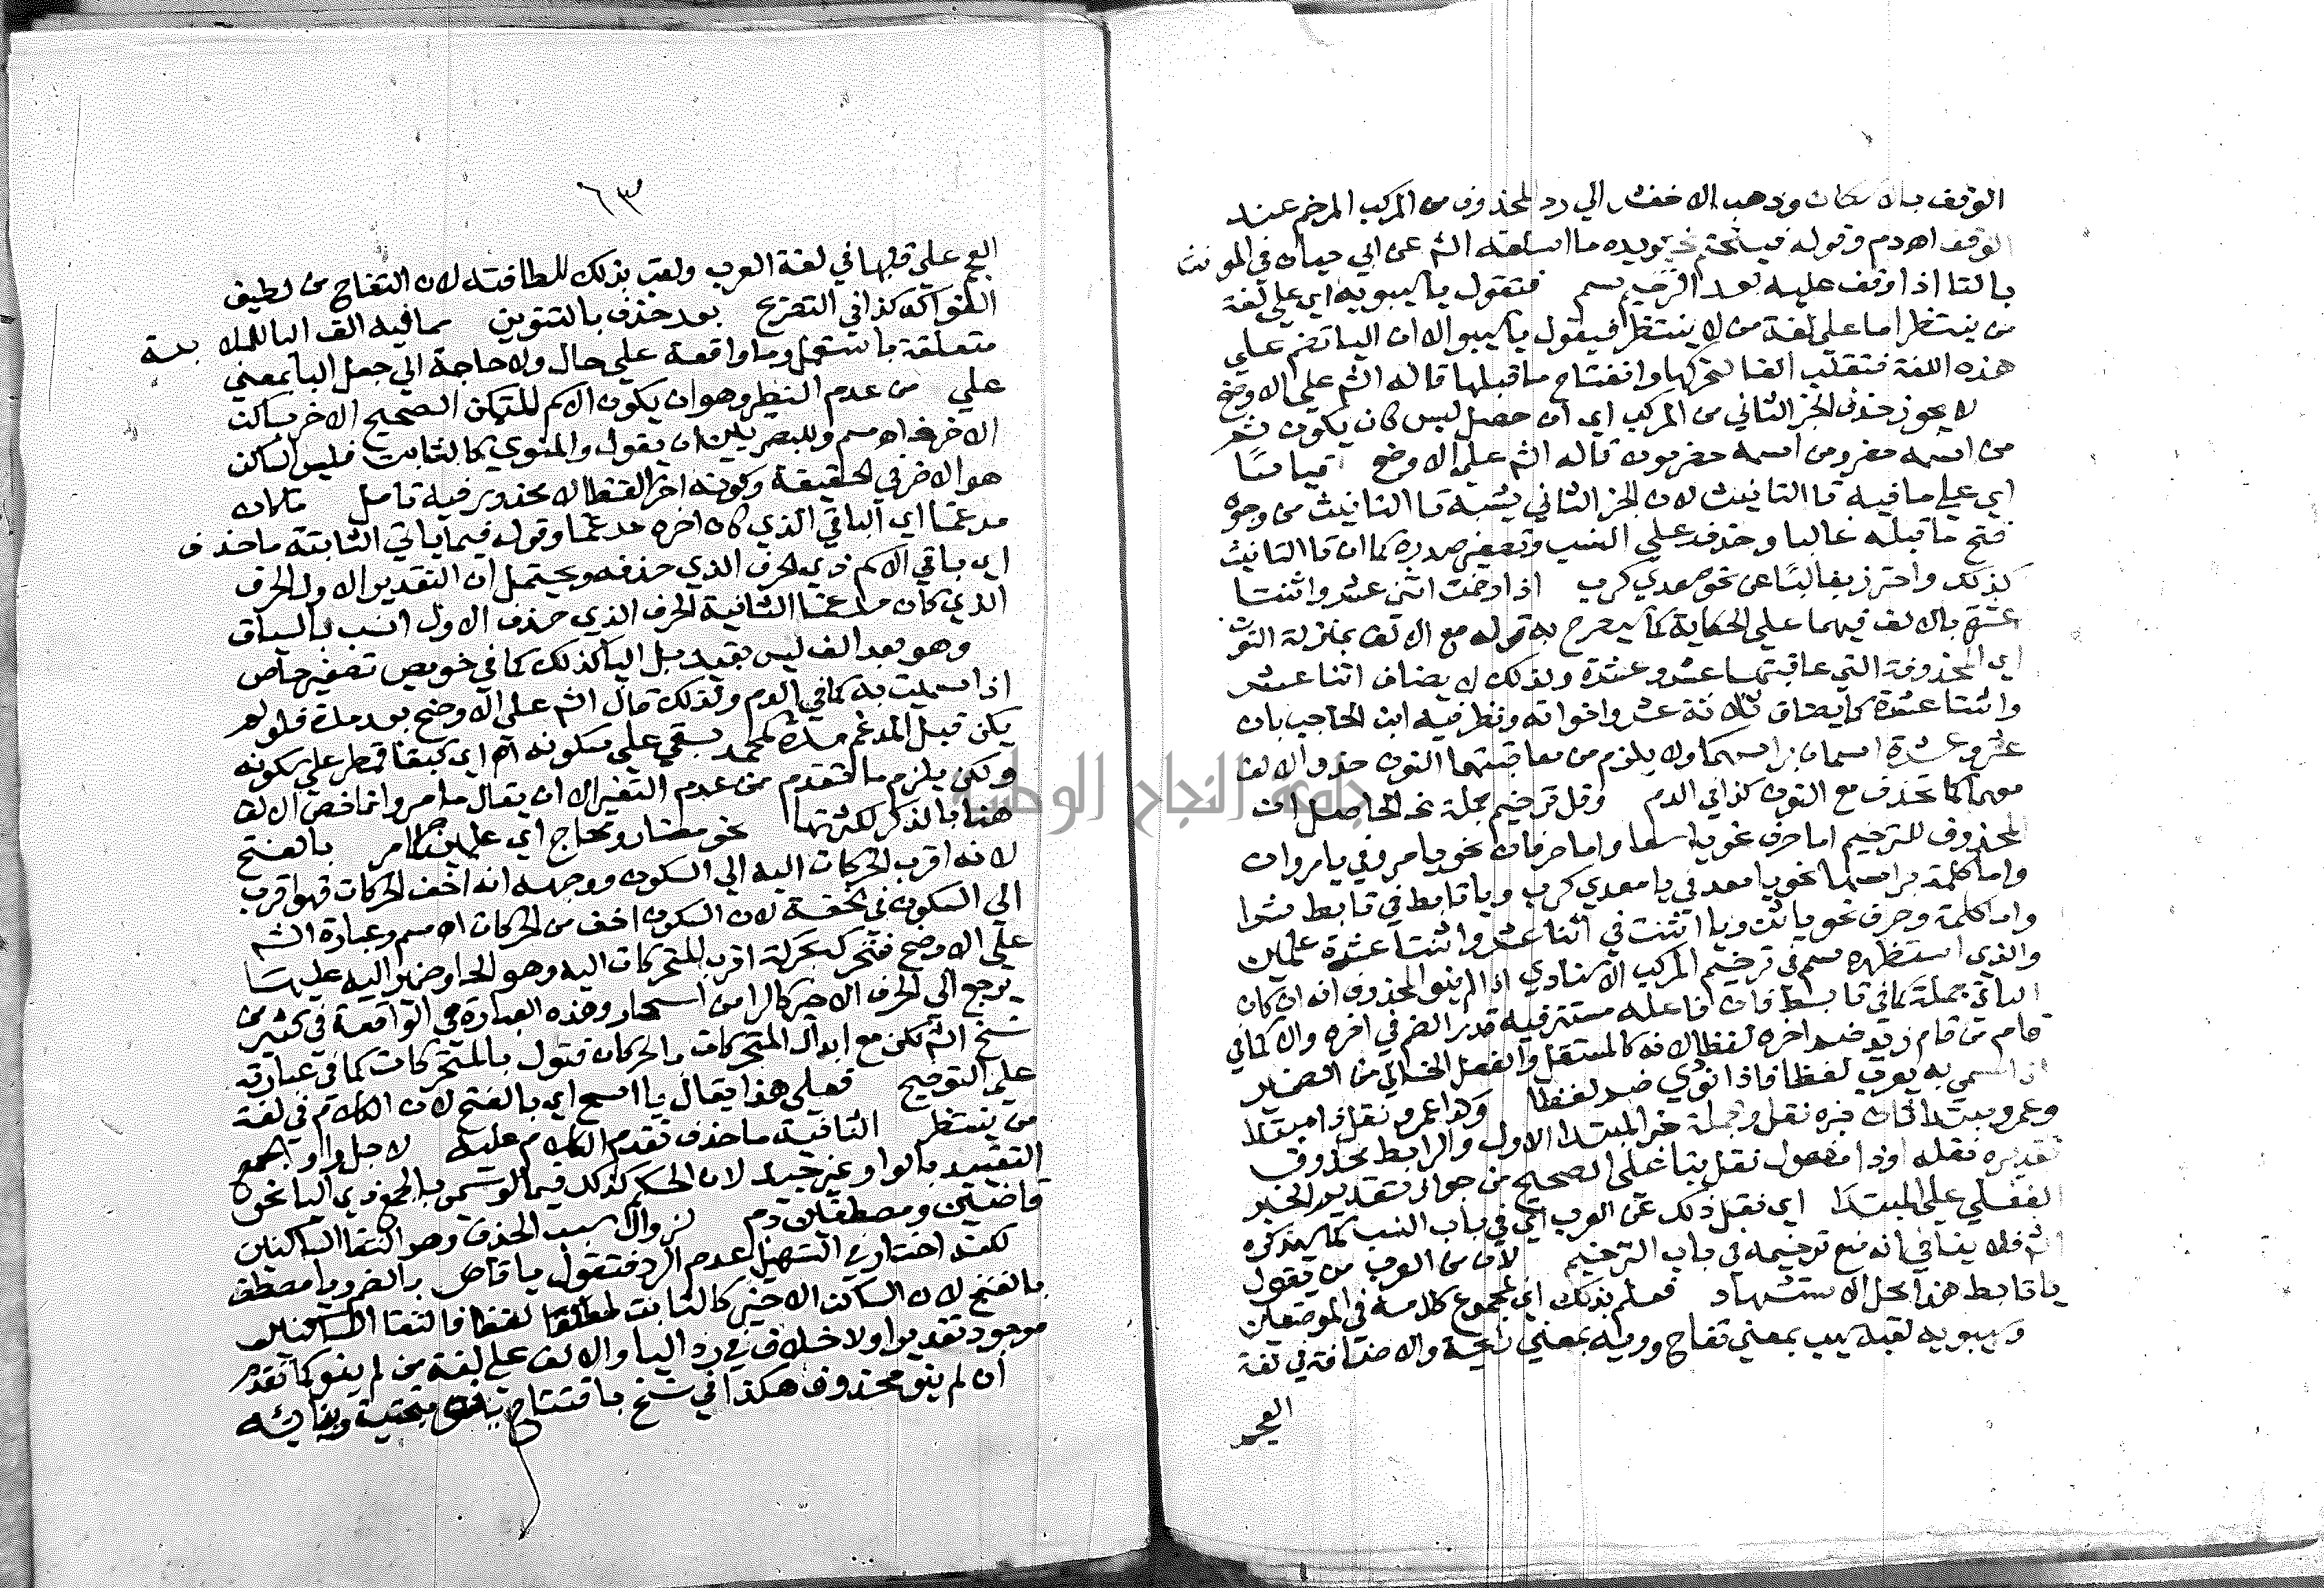 الوقف بالاسكان وذهب الاخفش الي رد المحذوف من المركب المرخم عند
الوقف اهدم وقوله يويده ما اسلفه الشم عن ابي حيان في المونث
بالتا اذا وقف عليه بعد الترخيم سم فتقول ياسيبويه اي علي لغة
من ينتظر اما علي لغة من لا ينتظر فيقول ياسيبو الا ان اليا تضم علي
هذه اللغة فتقلب الفا لتحركها وانفتاح ما قبلها قاله الشم علي الاوضح
لا يجوز حذف الجز الثاني من المركب اي ان حصل لبس كان يكون ثم
من اسمه حضر ومن اسمه حضرموت قاله الشم علي الاوضح قياسا
اي علي ما فيه تا التانيث لان الجز الثاني يشبه تا التانيث من وجوه
فتح ما قبله غالبا وحذفه علي النسب وتصغير صدره كما ان تا التانيث
كذلك واحترز بغالبا عن نحو معدي كرب اذا رخمت اثني عشر واثنتا
عشرة بالالف فيهما علي الحكاية كما يصرح به قوله مع الالف بمنزلة النون
اي المحذوفة التي عاقبتها عشر وعشرة ولذلك لا يضاف اثنا عشر
واثنتا عشرة كما يضاف ثلاثة عشر واخواته ونظر فيه ابن الحاجب بان
عشر وعشرة اسمان براسهما ولا يلزم من معاقبتهما النون حذف الالف
معهما كما تحذف مع النون كذا في الدم وقل ترخيم جملة الحاصل ان
المحذوف للترخيم اما حرف نحو يا سعا واما حرفان نحو يا مرو في يا مروان
واما كلمة براسها نحو يا معد في يا معدي كرب ويا تابط في تابط شرا
واما كلمة وحرف نحو يا اثن ويا اثنت في اثنا عشر واثنتا عشرة علمين
والذي استظهره سم في ترخيم المركب الاسنادي اذا لم ينو المحذوف انه ان كان
الباقي جملة كما في تابط فان فاعله مستتر فيه قدر الضم في اخره والا كما في
قام من قام زيد ضم اخره لفظا لانه كالمستقل والفعل الخالي من الضمير
اذا سمي به يعرب لفظا فاذا نودي ضم لفظا وذا عمرو نقل ذا مبتدا
وعمرو مبتدا ثان خبره نقل وجملة خبر المبتدا الاول والرابط محذوف
تقديره نقله او ذا مفعول نقل بنا علي الصحيح من جواز تقديم الخبر
الفعلي علي المبتدا اي نقل ذلك عن العرب اي في باب النسب كما سيذكره
الشم فلا ينافي انه منع ترخيمه في باب الترخيم لان من العرب من يقول
يا تابط هذا محل الاستشهاد فعلم بذلك اي بمجموع كلامه في الموضعين
وسيبويه لقبه سيب بمعني تفاح وويه بمعني رائحة والاضافة في لغة
العجم
٦٣
العجم علي قلبها في لغة العرب ولقب بذلك للطافته لان التفاح من لطيف
الفواكه كذا في التصريح بعد حذف بالتنوين مما فيه الف البا للملابسة
متعلقة باستعمل وما واقعة علي حال ولا حاجة الي جعل البا بمعني
علي من عدم النظير وهو ان يكون الاسم المتمكن الصحيح الاخر ساكن
الاخر اهـ سم وللبصريين ان يقول والمنوي كالثابت فليس الساكن
هو الاخر في الحقيقة وكونه اخرا لفظا لا محذور فيه تامل كان
مدغما اي الباقي الذي كان اخره مدغما وقوله فيما ياتي الثابتة ما حذف
اي باقي الاسم ذي الحرف الذي حذف ويحتمل ان التقدير الاول الحرف
الذي كان مدغما الثانية الحرف الذي حذف الاول انسب بالسياق
وهو بعد الف ليس بقيد بل اليا كذلك كما في خويص تصغير خاص
اذا سميت به كما في الدم ولذلك قال الشم علي الاوضح بعد مدة فلو لم
يكن قبل المدغم مدة كمحمد بقي علي سكونه اهـ اي كبقا قمطر علي سكونه
ولكن يلزم ما تقدم من عدم النظير الا ان يقال ما مر وانما خص الالف
هنا بالذكر لكثرتها نحو مضار ومحاج اي علمين كما مر بالفتح
لانه اقرب الحركات اليه الي السكون ووجهه انه اخف الحركات فهو اقرب
الي السكون في الخفة لان السكون اخف من الحركات اهـ سم وعبارة الشم
علي الاوضح فتحركه بحركة اقرب المتحركات اليه وهو الحا وضمير اليه عليها
يرجع الي الحرف الاخير كالرا من اسحار وهذه العبارة هي الواقعة في كثير من
نسخ الشم لكن مع ابدال المتحركات بالحركات فتول بالمتحركات كما في عبارته
علي التوضيح فعلي هذا يقال يا اسح اي بالفتح لان الكلام في لغة
من ينتظر الثانية ما حذف تقدم الكلام عليه لاجل واو الجمع
التقييد بالواو غير جيد لان الحكم كذلك فيما لو سمي بالجمع ذي اليا نحو
قاضين ومصطفين دم لزوال سبب الحذف وهو التقا الساكنين
لكنه اختار في التسهيل عدم الرد فتقول يا قاض بالضم ويا مصطف
بالفتح لان الساكن الاخير كالثابت لفظا فالتقا الساكنين
موجود تقديرا ولا خلاف في رد اليا والالف علي لغة من لم ينو كما تقدم
ان لم ينو محذوف هكذا في نسخ بافتتاح ينو بتحتية وبنائه